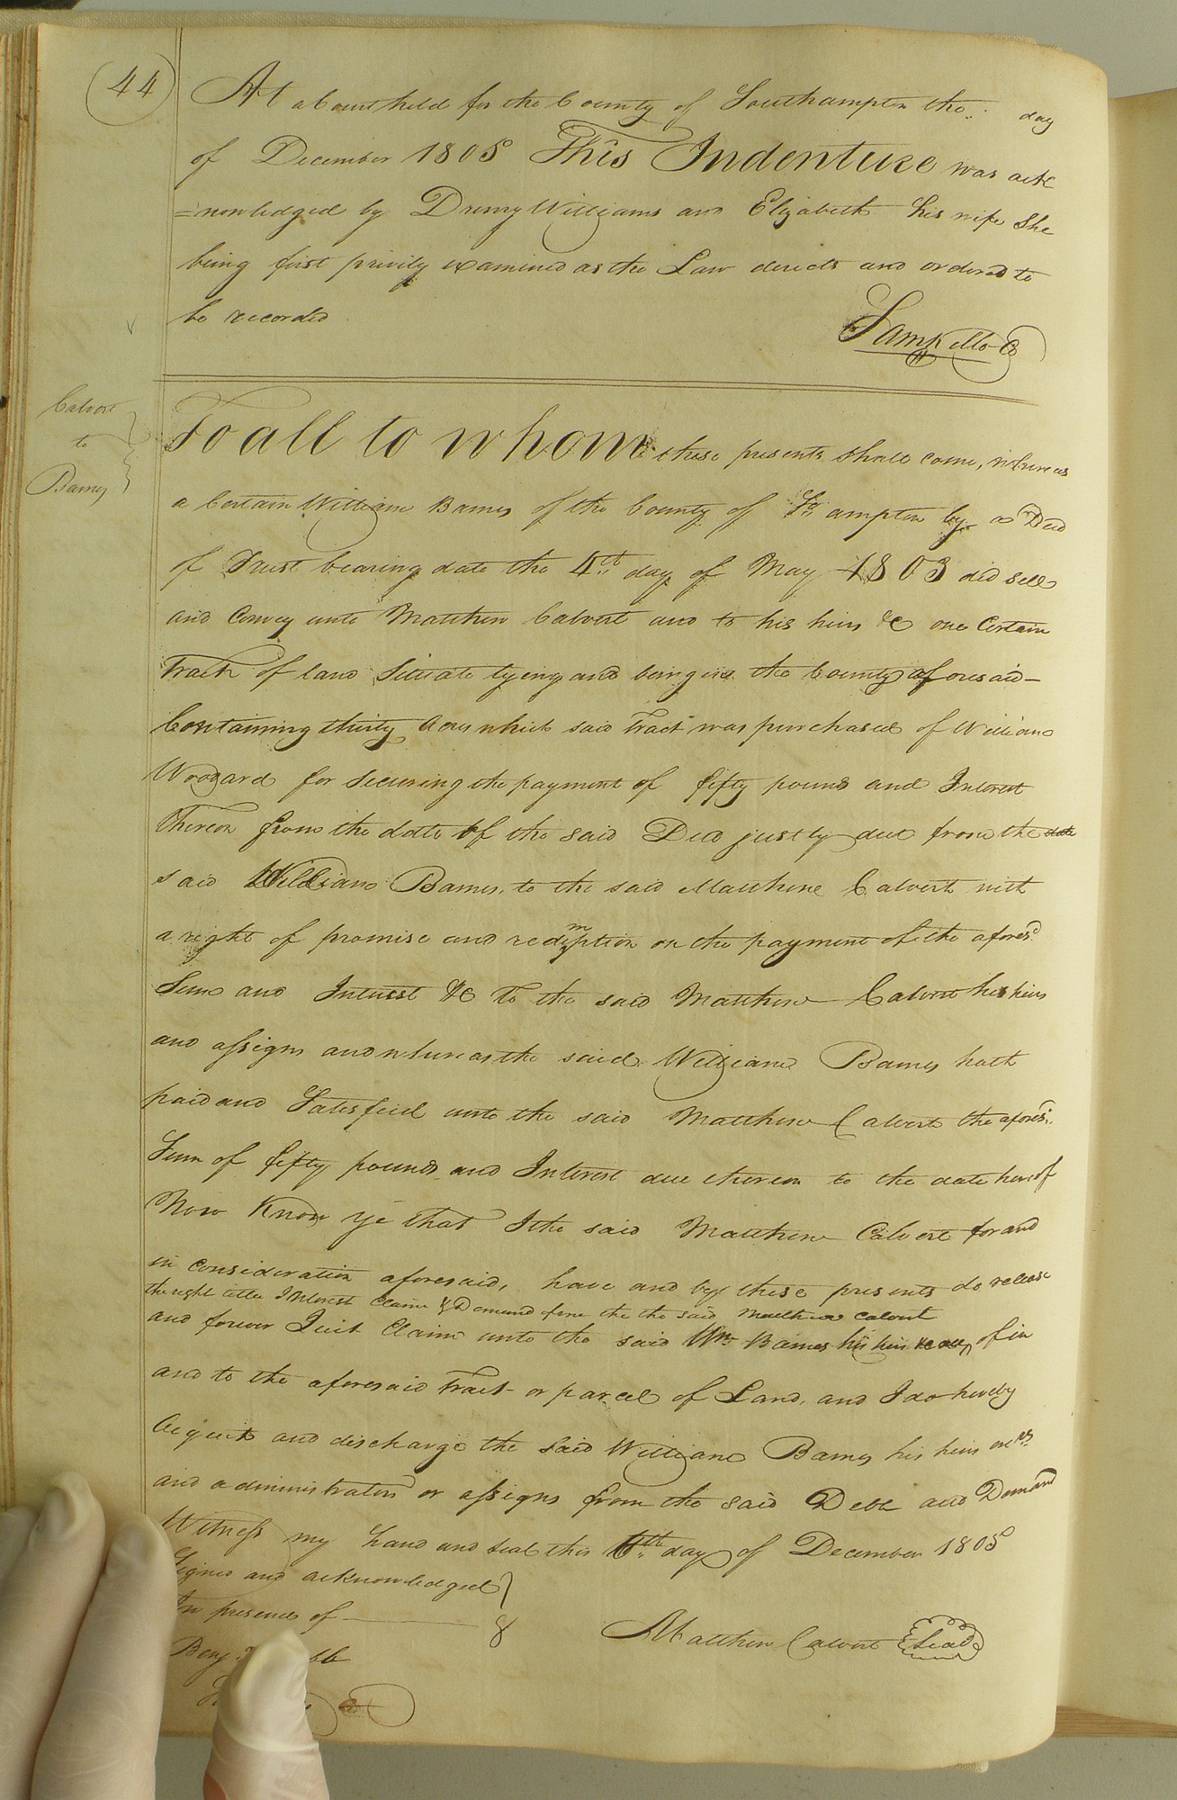 44
At a Court held for the County of Southampton the day
of December 1805 This Indenture was ack
=nowledged by Drewry Williams and Elizabeth his wife She
being first privily examined as the Law directs and ordered to
be recorded
Calvert
to
Barnes
To all to whom these presents shall come, whereas
a Certain William Barnes of the County of So ampton by a Deed
of Trust bearing date the 4th day of May 1803 did sell
and Convey unto Matthew Calvert and to his heirs &C one Certain
Tract of land Situate lying and being in the County aforesaid-
Containing thirty Acres which said Tract was purchased of William
Woodard for Securing the payment of fifty pounds and Interest
thereon from the date of the said Deed justly due from the date
said William Barnes, to the said Matthew Calvert with
a right of promise and redemption on the payment of the aforesd
Sum and Interest &C to the said Matthew Calvert his heirs
and assigns and whereas the said William Barnes hath
paid and Satesfied unto the said Matthew Calvert the aforesd
Sum of fifty pounds and Interest due thereon to the date hereof
Now Know ye that I the said Matthew Calvert for and
in consideration aforesaid, have and by these presents do release
the right title Interest Claim & Demand from the the said Matthew Calvert
and forever Quit Claim unto the said Wm Barnes his heirs of in
and to the aforesaid Tract or parcel of Land, and I do hereby
Acquit and discharge the Said William Barnes his heirs
and administrators or assigns from the said Debt and Demand
Witness my hand and seal this 6th day of December 1805
Signed and acknowledged }
In presence of
Matthew Calvert Seal